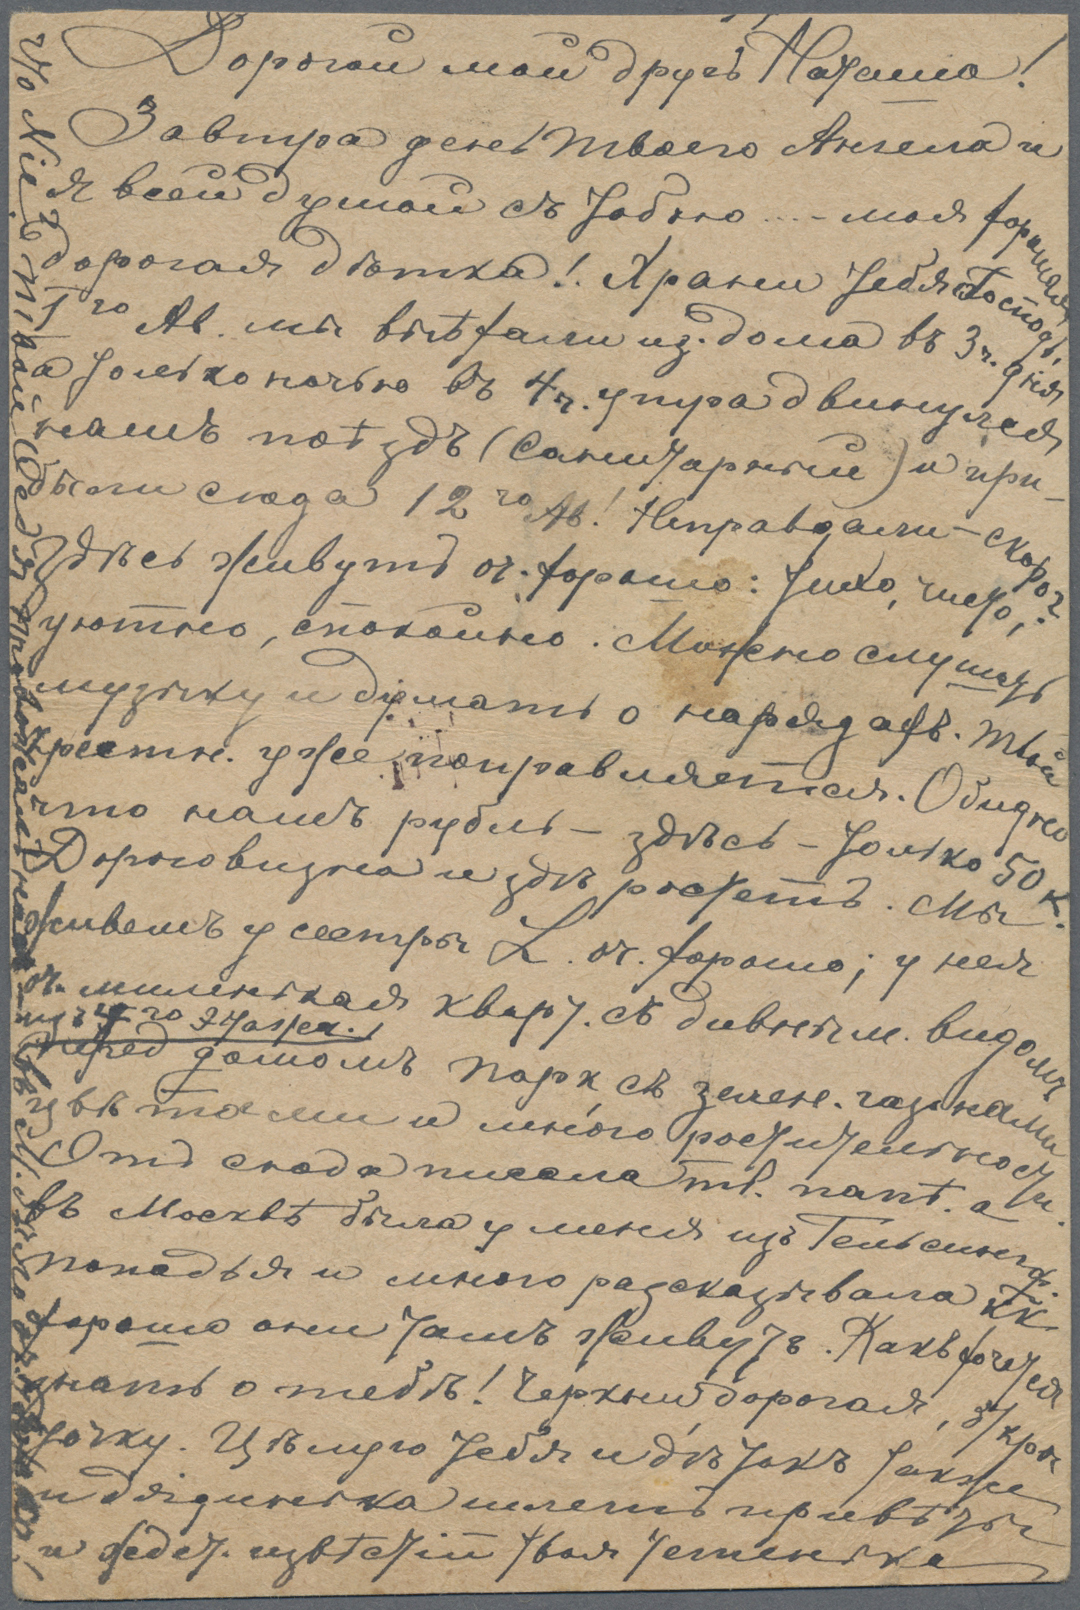 Дорогой мой другъ Наташа!
Завтра день твоего Ангела и
я всей душой съ тобою ... – моя хорошая,
дорогая дѣтка! Храни тебя Господь.
7го Ав. мы выѣхали из. дома въ 3 ч. дня
а только ночью въ 4 ч. утра двинулся
нашъ поѣздъ (санитарный) и при-
были сюда 12го Ав! Неправда ли – скоро?
Здѣсь живутъ оч. хорошо: тихо, чисто,
уютно, спокойно. Можно слушать
музыку и думать о нарядахъ. твоя
крестн. уже поправляется. Обидно
что нашъ рубль – здѣсь – только 50 к.
Дороговизна и здѣ ростетъ. Мы
живемъ у сестры L. оч. хорошо; у нея
оч. миленькая кварт. съ дивным. видомъ
изъ 4го этажа.
Перед домомъ парк съ зелен. газонами
цвѣтами и много растительности.
Отъ сюда писала тв. папѣ. а
въ Москвѣ была у меня изъ Гельсингф.
попадья и много разсказывала как
хорошо они тамъ живутъ. Какъ хочется
знать о тебѣ! Черкни дорогая, открыточку.
Цѣлую тебя и дѣтокъ также
и дядинька шлетъ привѣты
и ждет. извѣстій твоя тетенька